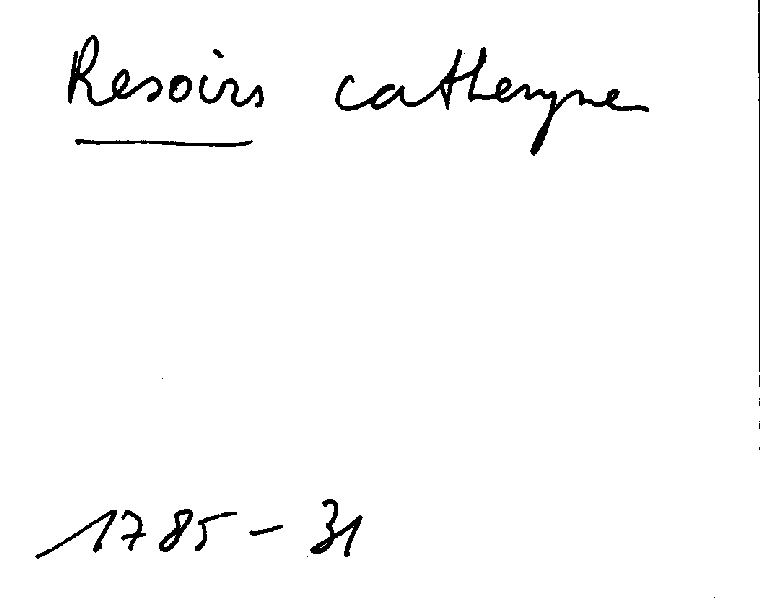 Resoirs catheryne
1785 - 31